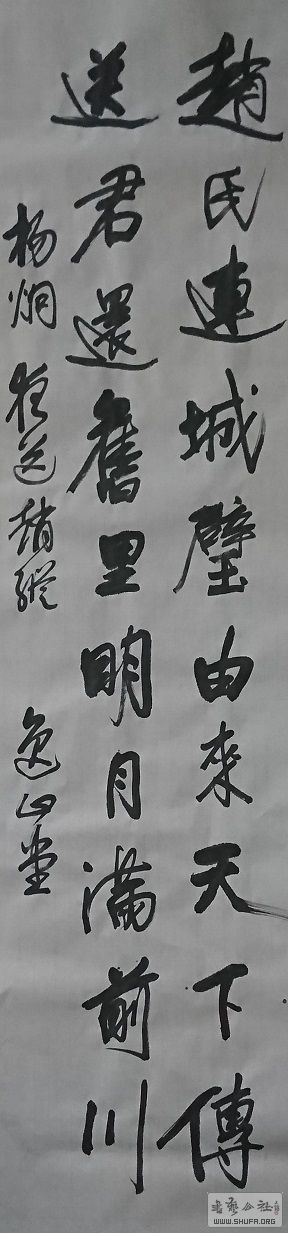 趙氏連城璧由來天下傳
送君還舊里明月滿前川
楊炯夜送趙縱
逸山堂
書藝公社
WWW.SHUFA.ORG